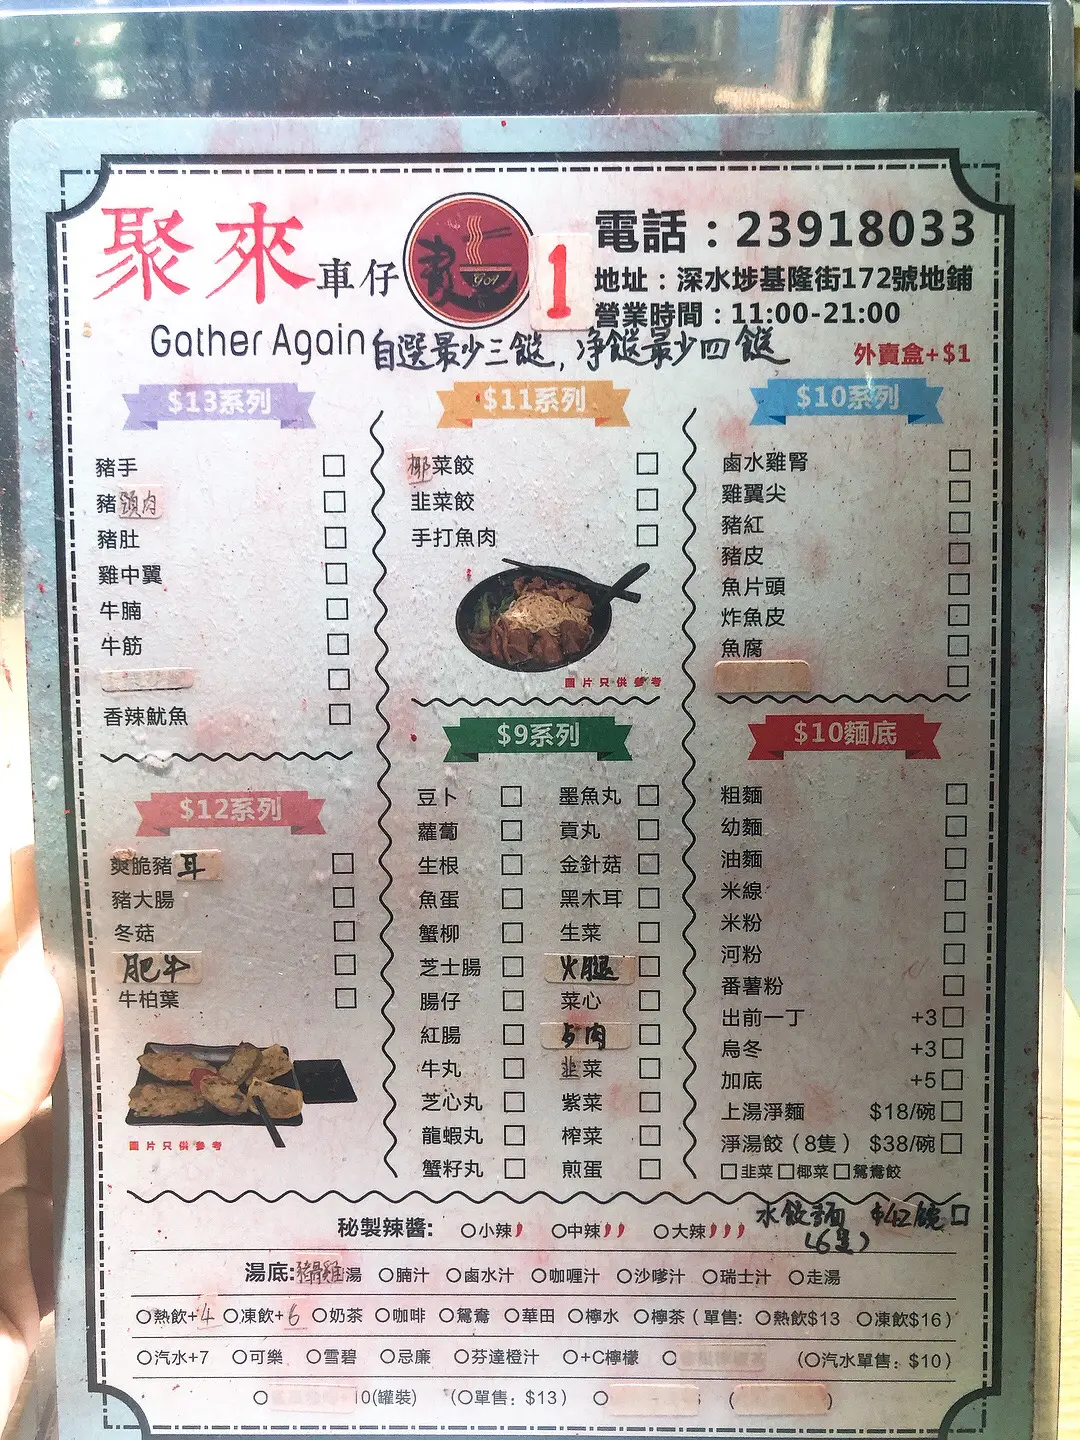 聚來車仔
Gather Again
1
電話：23918033
地址：深水埗基隆街172號地鋪
營業時間：11:00-21:00
自選最少三餸，净餸最少四餸
外賣盒+$1
$13系列
豬手
豬頸肉
豬肚
雞中翼
牛腩
牛筋
香辣魷魚
$12系列
爽脆豬耳
豬大腸
冬菇
肥牛
牛柏葉
圖片只供參考
$11系列
椰菜餃
韭菜餃
手打魚肉
圖片只供參考
$9系列
豆卜 墨魚丸
蘿蔔 貢丸
生根 金針菇
魚蛋 黑木耳
蟹柳 生菜
芝士腸 火腿
腸仔 菜心
紅腸 肉
牛丸 韭菜
芝心丸 紫菜
龍蝦丸 榨菜
蟹籽丸 煎蛋
$10系列
鹵水雞腎
雞翼尖
豬紅
豬皮
魚片頭
炸魚皮
魚腐
$10麵底
粗麵
幼麵
油麵
米線
米粉
河粉
番薯粉
出前一丁 +3
烏冬 +3
加底 +5
上湯淨麵 $18/碗
淨湯餃（8隻） $38/碗
韭菜 椰菜 鴛鴦餃
水餃麵 $42/碗
(6隻)
秘製辣醬: 小辣 中辣 大辣
湯底:豬骨雞湯 腩汁 鹵水汁 咖喱汁 沙嗲汁 瑞士汁 走湯
熱飲+4 凍飲+6 奶茶 咖啡 鴛鴦 華田 檸水 檸茶（單售: 熱飲$13 凍飲$16）
汽水+7 可樂 雪碧 忌廉 芬達橙汁 +C檸檬 （汽水單售：$10）
0(罐裝) （單售：$13）